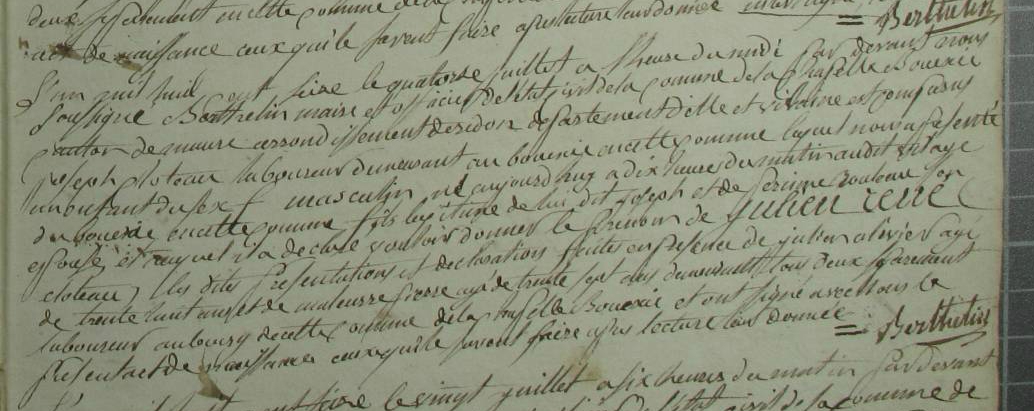 deux également en cette commune de la
acte de naissance ceux qui le savent faire après lecture leur donnée = Berthelin
L'an mil huit cent seize le quatorse juillet a l'heure du midi par devant nous
soussigné Berthelin maire et officier de l'etat civil de la comune de la Chapelle Bouexic
canton de maure arrondissement de redon departement d'ille et vilaine est comparus
joseph cloteau laboureur demeurant au bouexic en cette commune lequel nous a presenté
un enfant du sexe masculin né aujourd'huy a dix heures du matin audit village
du bouexic en cette commune fils legitime de lui dit joseph et de perrine Bouleau son
epouse et auquel il a declaré vouloir donner le prenom de julien rené
cloteau les dites presentations et declarations faites en presence de julien olivier agé
de trente huit ans et de mathurin agé de trente sept ans demeurant tous deux separement
laboureur au bourg de cette commune de la chapelle Bouexic et ont signé avec nous le
present acte de naissance ceux qui le savent faire apres lecture leur donnée = Berthelin
seize le vingt juillet a six heures du matin par devant
l'etat civil de la commune de